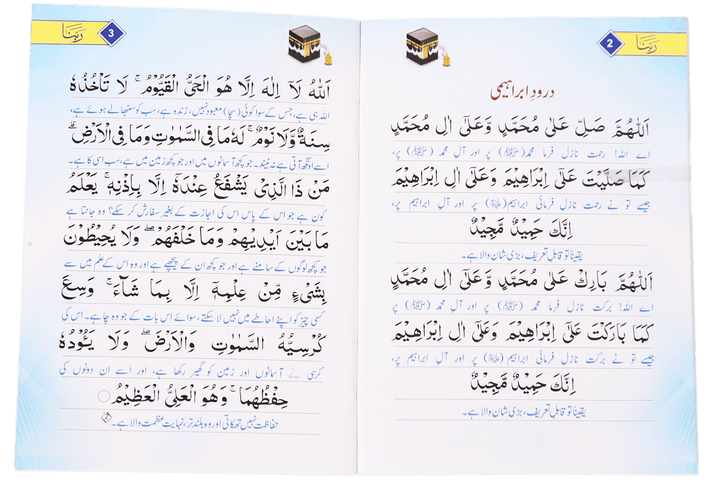 رَبَّنَا
2
درودِ ابراہیمی
اَللّٰهُمَّ صَلِّ عَلٰى مُحَمَّدٍ وَّعَلٰٓى اٰلِ مُحَمَّدٍ
اے اللہ! رحمت نازل فرما محمد (ﷺ) پر اور آلِ محمد (ﷺ) پر،
كَمَا صَلَّيْتَ عَلٰٓى اِبْرَاهِيْمَ وَعَلٰٓى اٰلِ اِبْرَاهِيْمَ
جیسے تو نے رحمت نازل فرمائی ابراہیم (علیہ السلام) پر اور آلِ ابراہیم پر،
اِنَّكَ حَمِيْدٌ مَّجِيْدٌ
یقیناً تو قابلِ تعریف، بڑی شان والا ہے۔
اَللّٰهُمَّ بَارِكْ عَلٰى مُحَمَّدٍ وَّعَلٰٓى اٰلِ مُحَمَّدٍ
اے اللہ! برکت نازل فرما محمد (ﷺ) پر اور آلِ محمد (ﷺ) پر،
كَمَا بَارَكْتَ عَلٰٓى اِبْرَاهِيْمَ وَعَلٰٓى اٰلِ اِبْرَاهِيْمَ
جیسے تو نے برکت نازل فرمائی ابراہیم (علیہ السلام) پر اور آلِ ابراہیم پر،
اِنَّكَ حَمِيْدٌ مَّجِيْدٌ
یقیناً تو قابلِ تعریف، بڑی شان والا ہے۔
رَبَّنَا
3
اَللّٰهُ لَآ اِلٰهَ اِلَّا هُوَ الْحَيُّ الْقَيُّوْمُ ۚ لَا تَاْخُذُهٗ
اللہ ہی ہے، جس کے سوا کوئی (سچا) معبود نہیں، زندہ ہے، سب کو سنبھالے ہوئے ہے،
سِنَةٌ وَّلَا نَوْمٌ ۭ لَهٗ مَا فِى السَّمٰوٰتِ وَمَا فِى الْاَرْضِ ۭ
اسے اونگھ آتی ہے نہ نیند۔ جو کچھ آسمانوں میں اور جو کچھ زمین میں ہے، سب اسی کا ہے۔
مَنْ ذَا الَّذِىْ يَشْفَعُ عِنْدَهٗٓ اِلَّا بِاِذْنِهٖ ۭ يَعْلَمُ
کون ہے جو اس کے پاس اس کی اجازت کے بغیر سفارش کر سکے؟ وہ جانتا ہے
مَا بَيْنَ اَيْدِيْهِمْ وَمَا خَلْفَهُمْ ۚ وَلَا يُحِيْطُوْنَ
جو کچھ لوگوں کے سامنے ہے اور جو کچھ ان کے پیچھے ہے اور وہ اس کے علم میں سے
بِشَىْءٍ مِّنْ عِلْمِهٖٓ اِلَّا بِمَا شَآءَ ۚ وَسِعَ
کسی چیز کو اپنے احاطے میں نہیں لا سکتے، سوائے اس بات کے جو وہ چاہے۔ اس کی
كُرْسِيُّهُ السَّمٰوٰتِ وَالْاَرْضَ ۚ وَلَا يَـُٔوْدُهٗ
کرسی نے آسمانوں اور زمین کو گھیر رکھا ہے، اور اسے ان دونوں کی
حِفْظُهُمَا ۚ وَهُوَ الْعَلِىُّ الْعَظِيْمُ ○
حفاظت نہیں تھکاتی اور وہ بلند تر، نہایت عظمت والا ہے۔